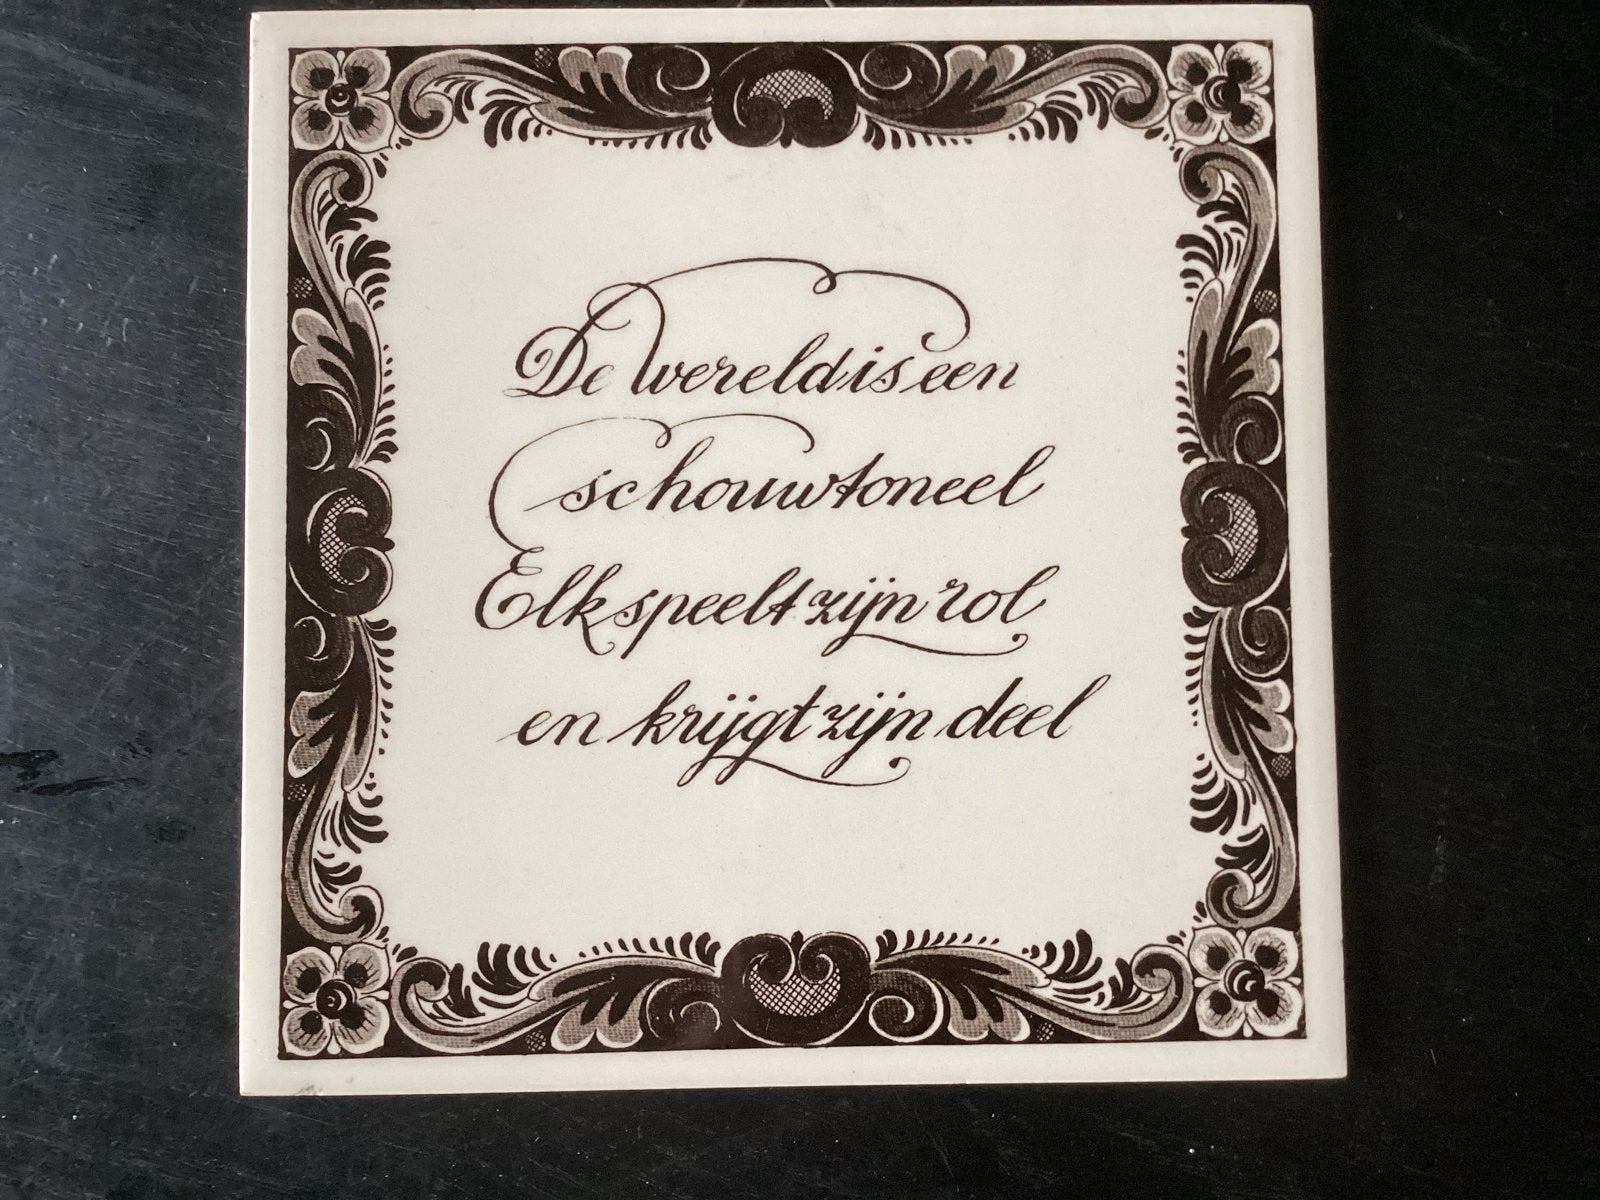 De wereld is een
schouwtoneel
Elk speelt zijn rol
en krijgt zijn deel